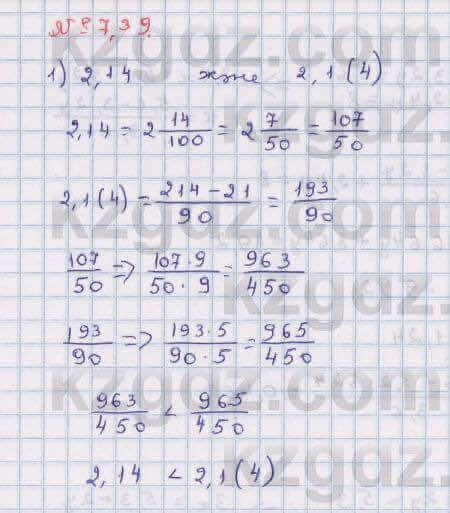 № 7,39.
1) 2,14 және 2,1(4)
2,14 = 2 14/100 = 2 7/50 = 107/50
2,1(4) = 214-21/90 = 193/90
107/50 => 107·9/50·9 = 963/450
193/90 => 193·5/90·5 = 965/450
963/450 < 965/450
2,14 < 2,1(4)
kzgaz.com